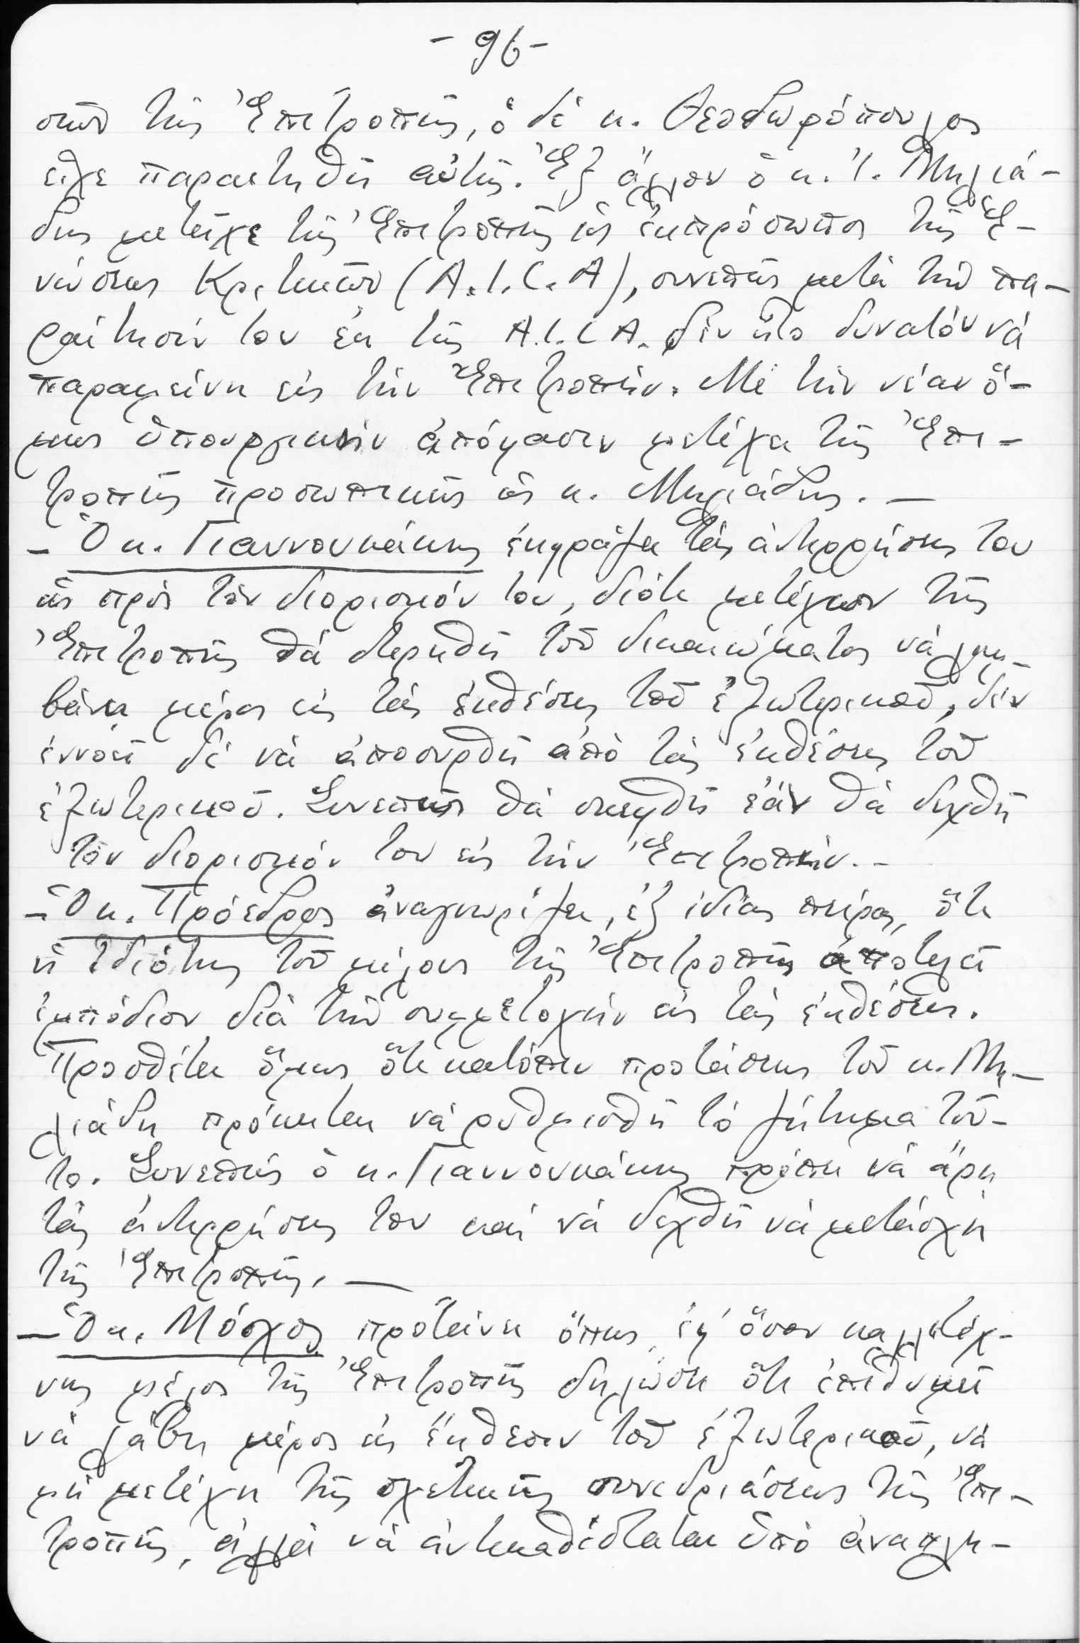 - 96 -
σεων τῆς Ἐπιτροπῆς, ὁ δὲ κ. Θεοδωρόπουλος
εἶχε παραιτηθῆ αὐτῆς. Ἐξ ἄλλου ὁ κ. Ι. Μηλιά-
δης μετεῖχε τῆς Ἐπιτροπῆς ὡς ἐκπρόσωπος τῆς Ἑ-
νώσεως Κριτικῶν (A.I.C.A), συνεπῶς μετὰ τὴν πα-
ραίτησίν του ἐκ τῆς A.I.C.A. δὲν ἦτο δυνατόν νὰ
παραμείνη εἰς τὴν Ἐπιτροπήν. Μὲ τὴν νέαν ὅ-
μως ὑπουργικὴν ἀπόφασιν μετέχει τῆς Ἐπι-
τροπῆς προσωπικῶς ὡς κ. Μηλιάδης. —
- Ὁ κ. Γιαννουκάκης ἐκφράζει τὰς ἀντιρρήσεις του
ὡς πρὸς τὸν διορισμόν του, διότι μετέχων τῆς
Ἐπιτροπῆς θὰ στερηθῆ τοῦ δικαιώματος νὰ λαμ-
βάνει μέρος εἰς τὰς ἐκθέσεις τοῦ ἐξωτερικοῦ, δὲν
ἐννοεῖ δὲ νὰ ἀποσυρθῆ ἀπὸ τὰς ἐκθέσεις τοῦ
ἐξωτερικοῦ. Συνεπῶς θὰ σκεφθῆ ἐὰν θὰ δεχθῆ
τὸν διορισμόν του εἰς τὴν Ἐπιτροπήν. -
- Ὁ κ. Πρόεδρος ἀναγνωρίζει, ἐξ ἰδίας πείρας, ὅτι
ἡ ἰδιότης τοῦ μέλους τῆς Ἐπιτροπῆς ἀποτελεῖ
ἐμπόδιον διὰ τὴν συμμετοχὴν εἰς τὰς ἐκθέσεις.
Προσθέτει ὅμως ὅτι κατόπιν προτάσεως τοῦ κ. Μη-
λιάδη πρόκειται νὰ ρυθμισθῆ τὸ ζήτημα τοῦ-
το. Συνεπῶς ὁ κ. Γιαννουκάκης πρέπει νὰ ἄρη
τὰς ἀντιρρήσεις του καὶ νὰ δεχθῆ νὰ μετάσχη
τῆς Ἐπιτροπῆς. —
- Ὁ κ. Μόσχος προτείνει ὅπως, ἐφ' ὅσον καλλιτέχ-
νης μέλος τῆς Ἐπιτροπῆς δηλώσει ὅτι ἐπιθυμεῖ
νὰ λάβη μέρος εἰς ἔκθεσιν τοῦ ἐξωτερικοῦ, νὰ
μὴ μετέχη τῆς σχετικῆς συνεδριάσεως τῆς Ἐπι-
τροπῆς, ἀλλὰ νὰ ἀντικαθίσταται ὑπὸ ἀναπλη-